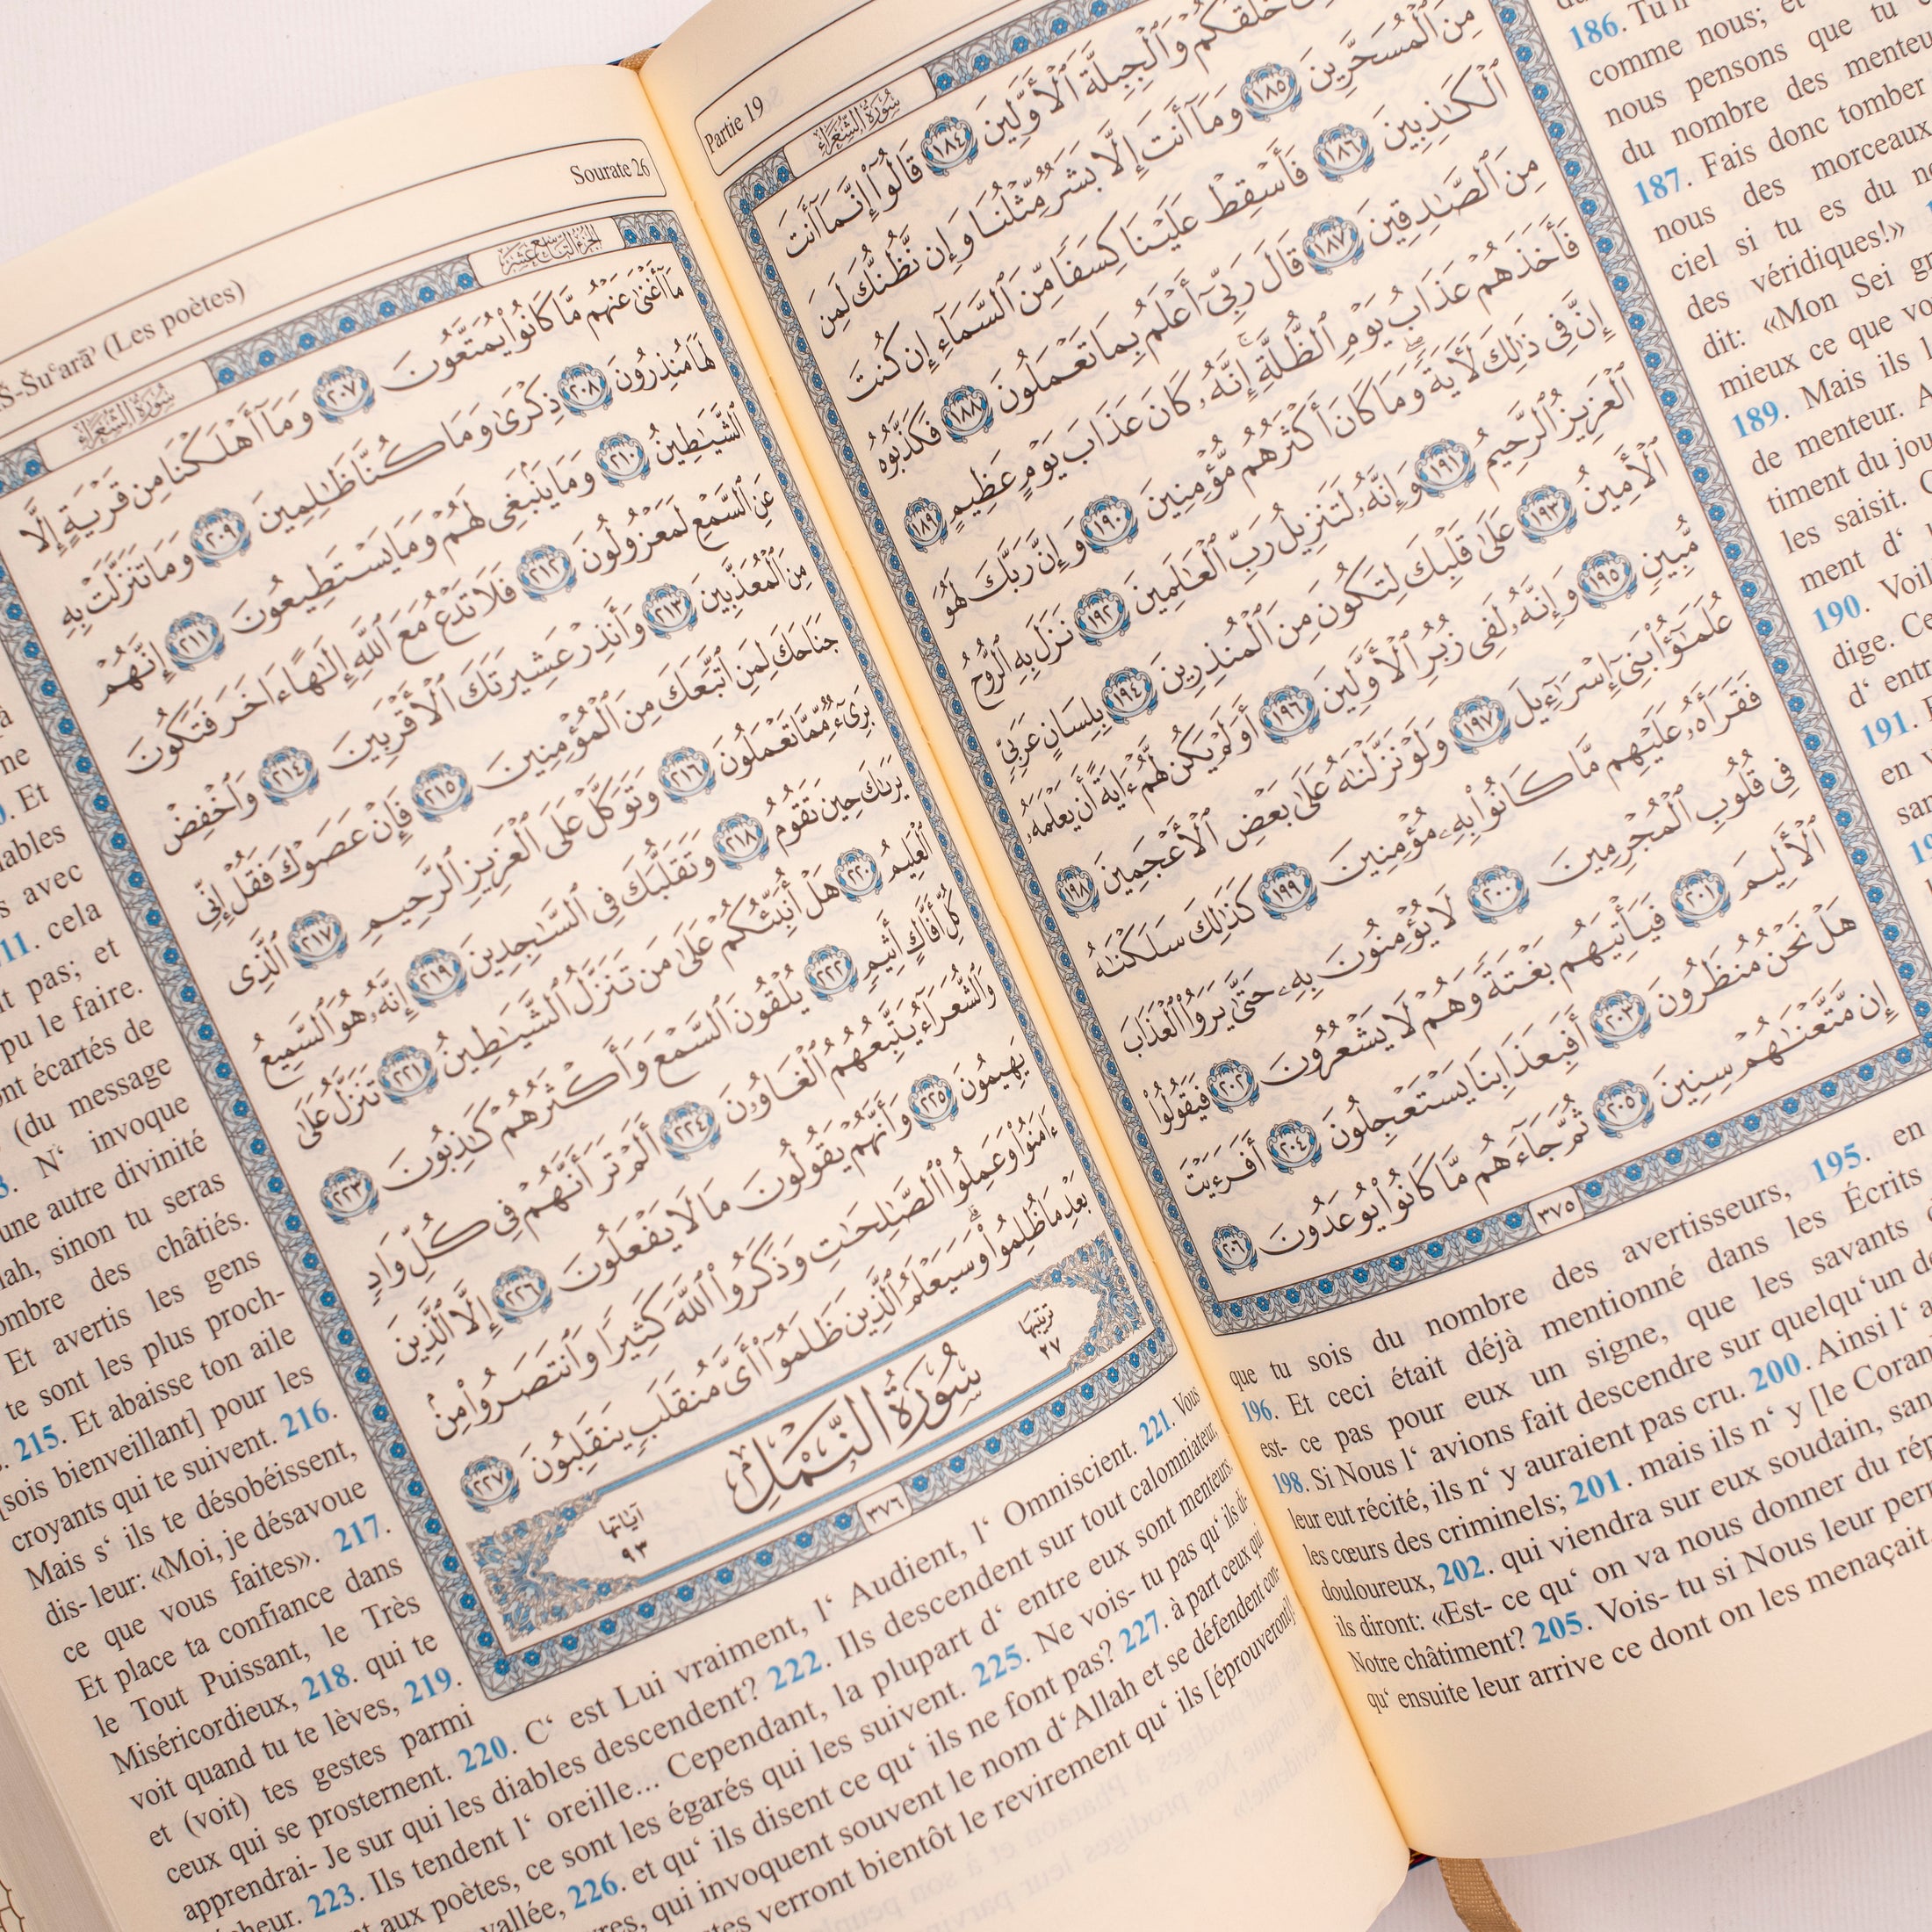 Partie 19
سُورَةُ الشُّعَرَاءِ
خَلَقَكُمْ وَٱلْجِبِلَّةَ ٱلْأَوَّلِينَ ١٨٤ قَالُوٓا۟ إِنَّمَآ أَنتَ
مِنَ ٱلْمُسَحَّرِينَ ١٨٥ وَمَآ أَنتَ إِلَّا بَشَرٌ مِّثْلُنَا وَإِن نَّظُنُّكَ لَمِنَ
ٱلْكَـٰذِبِينَ ١٨٦ فَأَسْقِطْ عَلَيْنَا كِسَفًا مِّنَ ٱلسَّمَآءِ إِن كُنتَ
مِنَ ٱلصَّـٰدِقِينَ ١٨٧ قَالَ رَبِّىٓ أَعْلَمُ بِمَا تَعْمَلُونَ ١٨٨ فَكَذَّبُوهُ
فَأَخَذَهُمْ عَذَابُ يَوْمِ ٱلظُّلَّةِ ۚ إِنَّهُۥ كَانَ عَذَابَ يَوْمٍ عَظِيمٍ ١٨٩
إِنَّ فِى ذَٰلِكَ لَـَٔايَةً ۖ وَمَا كَانَ أَكْثَرُهُم مُّؤْمِنِينَ ١٩٠ وَإِنَّ رَبَّكَ لَهُوَ
ٱلْعَزِيزُ ٱلرَّحِيمُ ١٩١ وَإِنَّهُۥ لَتَنزِيلُ رَبِّ ٱلْعَـٰلَمِينَ ١٩٢ نَزَلَ بِهِ ٱلرُّوحُ
ٱلْأَمِينُ ١٩٣ عَلَىٰ قَلْبِكَ لِتَكُونَ مِنَ ٱلْمُنذِرِينَ ١٩٤ بِلِسَانٍ عَرَبِىٍّ
مُّبِينٍ ١٩٥ وَإِنَّهُۥ لَفِى زُبُرِ ٱلْأَوَّلِينَ ١٩٦ أَوَلَمْ يَكُن لَّهُمْ ءَايَةً أَن يَعْلَمَهُۥ
عُلَمَـٰٓؤُا۟ بَنِىٓ إِسْرَٰٓءِيلَ ١٩٧ وَلَوْ نَزَّلْنَـٰهُ عَلَىٰ بَعْضِ ٱلْأَعْجَمِينَ ١٩٨
فَقَرَأَهُۥ عَلَيْهِم مَّا كَانُوا۟ بِهِۦ مُؤْمِنِينَ ١٩٩ كَذَٰلِكَ سَلَكْنَـٰهُ
فِى قُلُوبِ ٱلْمُجْرِمِينَ ٢٠٠ لَا يُؤْمِنُونَ بِهِۦ حَتَّىٰ يَرَوُا۟ ٱلْعَذَابَ
ٱلْأَلِيمَ ٢٠١ فَيَأْتِيَهُم بَغْتَةً وَهُمْ لَا يَشْعُرُونَ ٢٠٢ فَيَقُولُوا۟
هَلْ نَحْنُ مُنظَرُونَ ٢٠٣ أَفَبِعَذَابِنَا يَسْتَعْجِلُونَ ٢٠٤ أَفَرَءَيْتَ
إِن مَّتَّعْنَـٰهُمْ سِنِينَ ٢٠٥ ثُمَّ جَآءَهُم مَّا كَانُوا۟ يُوعَدُونَ ٢٠٦
٣٧٥
186. Tu n'
comme nous; et
nous pensons que tu
du nombre des menteu
187. Fais donc tomber
nous des morceaux
ciel si tu es du
des véridiques!»
dit: «Mon Sei
mieux ce que vo
189. Mais ils
de menteur.
timent du jou
les saisit.
ment d'
190. Voil
dige. Ce
d' entr
191.
en
que tu sois du nombre des avertisseurs, 195. en
196. Et ceci était déjà mentionné dans les Écrits
est- ce pas pour eux un signe, que les savants
198. Si Nous l' avions fait descendre sur quelqu'un de
leur eut récité, ils n' y auraient pas cru. 200. Ainsi l' a
les cœurs des criminels; 201. mais ils n' y [le Coran
douloureux, 202. qui viendra sur eux soudain, san
ils diront: «Est- ce qu' on va nous donner du rép
Notre châtiment? 205. Vois- tu si Nous leur perm
qu' ensuite leur arrive ce dont on les menaçait
Š-Šuʿarāʾ (Les poètes)
Sourate 26
سُورَةُ الشُّعَرَاءِ
الجزء التاسع عشر
مَآ أَغْنَىٰ عَنْهُم مَّا كَانُوا۟ يُمَتَّعُونَ ٢٠٧ وَمَآ أَهْلَكْنَا مِن قَرْيَةٍ إِلَّا
لَهَا مُنذِرُونَ ٢٠٨ ذِكْرَىٰ وَمَا كُنَّا ظَـٰلِمِينَ ٢٠٩ وَمَا تَنَزَّلَتْ بِهِ
ٱلشَّيَـٰطِينُ ٢١٠ وَمَا يَنۢبَغِى لَهُمْ وَمَا يَسْتَطِيعُونَ ٢١١ إِنَّهُمْ
عَنِ ٱلسَّمْعِ لَمَعْزُولُونَ ٢١٢ فَلَا تَدْعُ مَعَ ٱللَّهِ إِلَـٰهًا ءَاخَرَ فَتَكُونَ
مِنَ ٱلْمُعَذَّبِينَ ٢١٣ وَأَنذِرْ عَشِيرَتَكَ ٱلْأَقْرَبِينَ ٢١٤ وَٱخْفِضْ
جَنَاحَكَ لِمَنِ ٱتَّبَعَكَ مِنَ ٱلْمُؤْمِنِينَ ٢١٥ فَإِنْ عَصَوْكَ فَقُلْ إِنِّى
بَرِىٓءٌ مِّمَّا تَعْمَلُونَ ٢١٦ وَتَوَكَّلْ عَلَى ٱلْعَزِيزِ ٱلرَّحِيمِ ٢١٧ ٱلَّذِى
يَرَىٰكَ حِينَ تَقُومُ ٢١٨ وَتَقَلُّبَكَ فِى ٱلسَّـٰجِدِينَ ٢١٩ إِنَّهُۥ هُوَ ٱلسَّمِيعُ
ٱلْعَلِيمُ ٢٢٠ هَلْ أُنَبِّئُكُمْ عَلَىٰ مَن تَنَزَّلُ ٱلشَّيَـٰطِينُ ٢٢١ تَنَزَّلُ عَلَىٰ
كُلِّ أَفَّاكٍ أَثِيمٍ ٢٢٢ يُلْقُونَ ٱلسَّمْعَ وَأَكْثَرُهُمْ كَـٰذِبُونَ ٢٢٣
وَٱلشُّعَرَآءُ يَتَّبِعُهُمُ ٱلْغَاوُۥنَ ٢٢٤ أَلَمْ تَرَ أَنَّهُمْ فِى كُلِّ وَادٍ
يَهِيمُونَ ٢٢٥ وَأَنَّهُمْ يَقُولُونَ مَا لَا يَفْعَلُونَ ٢٢٦ إِلَّا ٱلَّذِينَ
ءَامَنُوا۟ وَعَمِلُوا۟ ٱلصَّـٰلِحَـٰتِ وَذَكَرُوا۟ ٱللَّهَ كَثِيرًا وَٱنتَصَرُوا۟ مِنۢ
بَعْدِ مَا ظُلِمُوا۟ ۗ وَسَيَعْلَمُ ٱلَّذِينَ ظَلَمُوٓا۟ أَىَّ مُنقَلَبٍ يَنقَلِبُونَ ٢٢٧
ترتيبها ٢٧
سُورَةُ النَّمْلِ
آياتها ٩٣
٣٧٦
à
ne
. Et
ables
s avec
11. cela
t pas; et
pu le faire.
nt écartés de
(du message
3. N' invoque
une autre divinité
lah, sinon tu seras
ombre des châtiés.
Et avertis les gens
te sont les plus proch-
215. Et abaisse ton aile
[sois bienveillant] pour les
croyants qui te suivent. 216.
Mais s' ils te désobéissent,
dis- leur: «Moi, je désavoue
ce que vous faites». 217.
Et place ta confiance dans
le Tout Puissant, le Très
Miséricordieux, 218. qui te
voit quand tu te lèves, 219.
et (voit) tes gestes parmi
ceux qui se prosternent. 220. C' est Lui vraiment, l' Audient, l' Omniscient. 221. Vous
apprendrai- Je sur qui les diables descendent? 222. Ils descendent sur tout calomniateur,
cheur. 223. Ils tendent l' oreille... Cependant, la plupart d' entre eux sont menteurs.
nt aux poètes, ce sont les égarés qui les suivent. 225. Ne vois- tu pas qu' ils di-
vallée, 226. et qu' ils disent ce qu' ils ne font pas? 227. à part ceux qui
res, qui invoquent souvent le nom d'Allah et se défendent con-
tes verront bientôt le revirement qu' ils [éprouveront]!